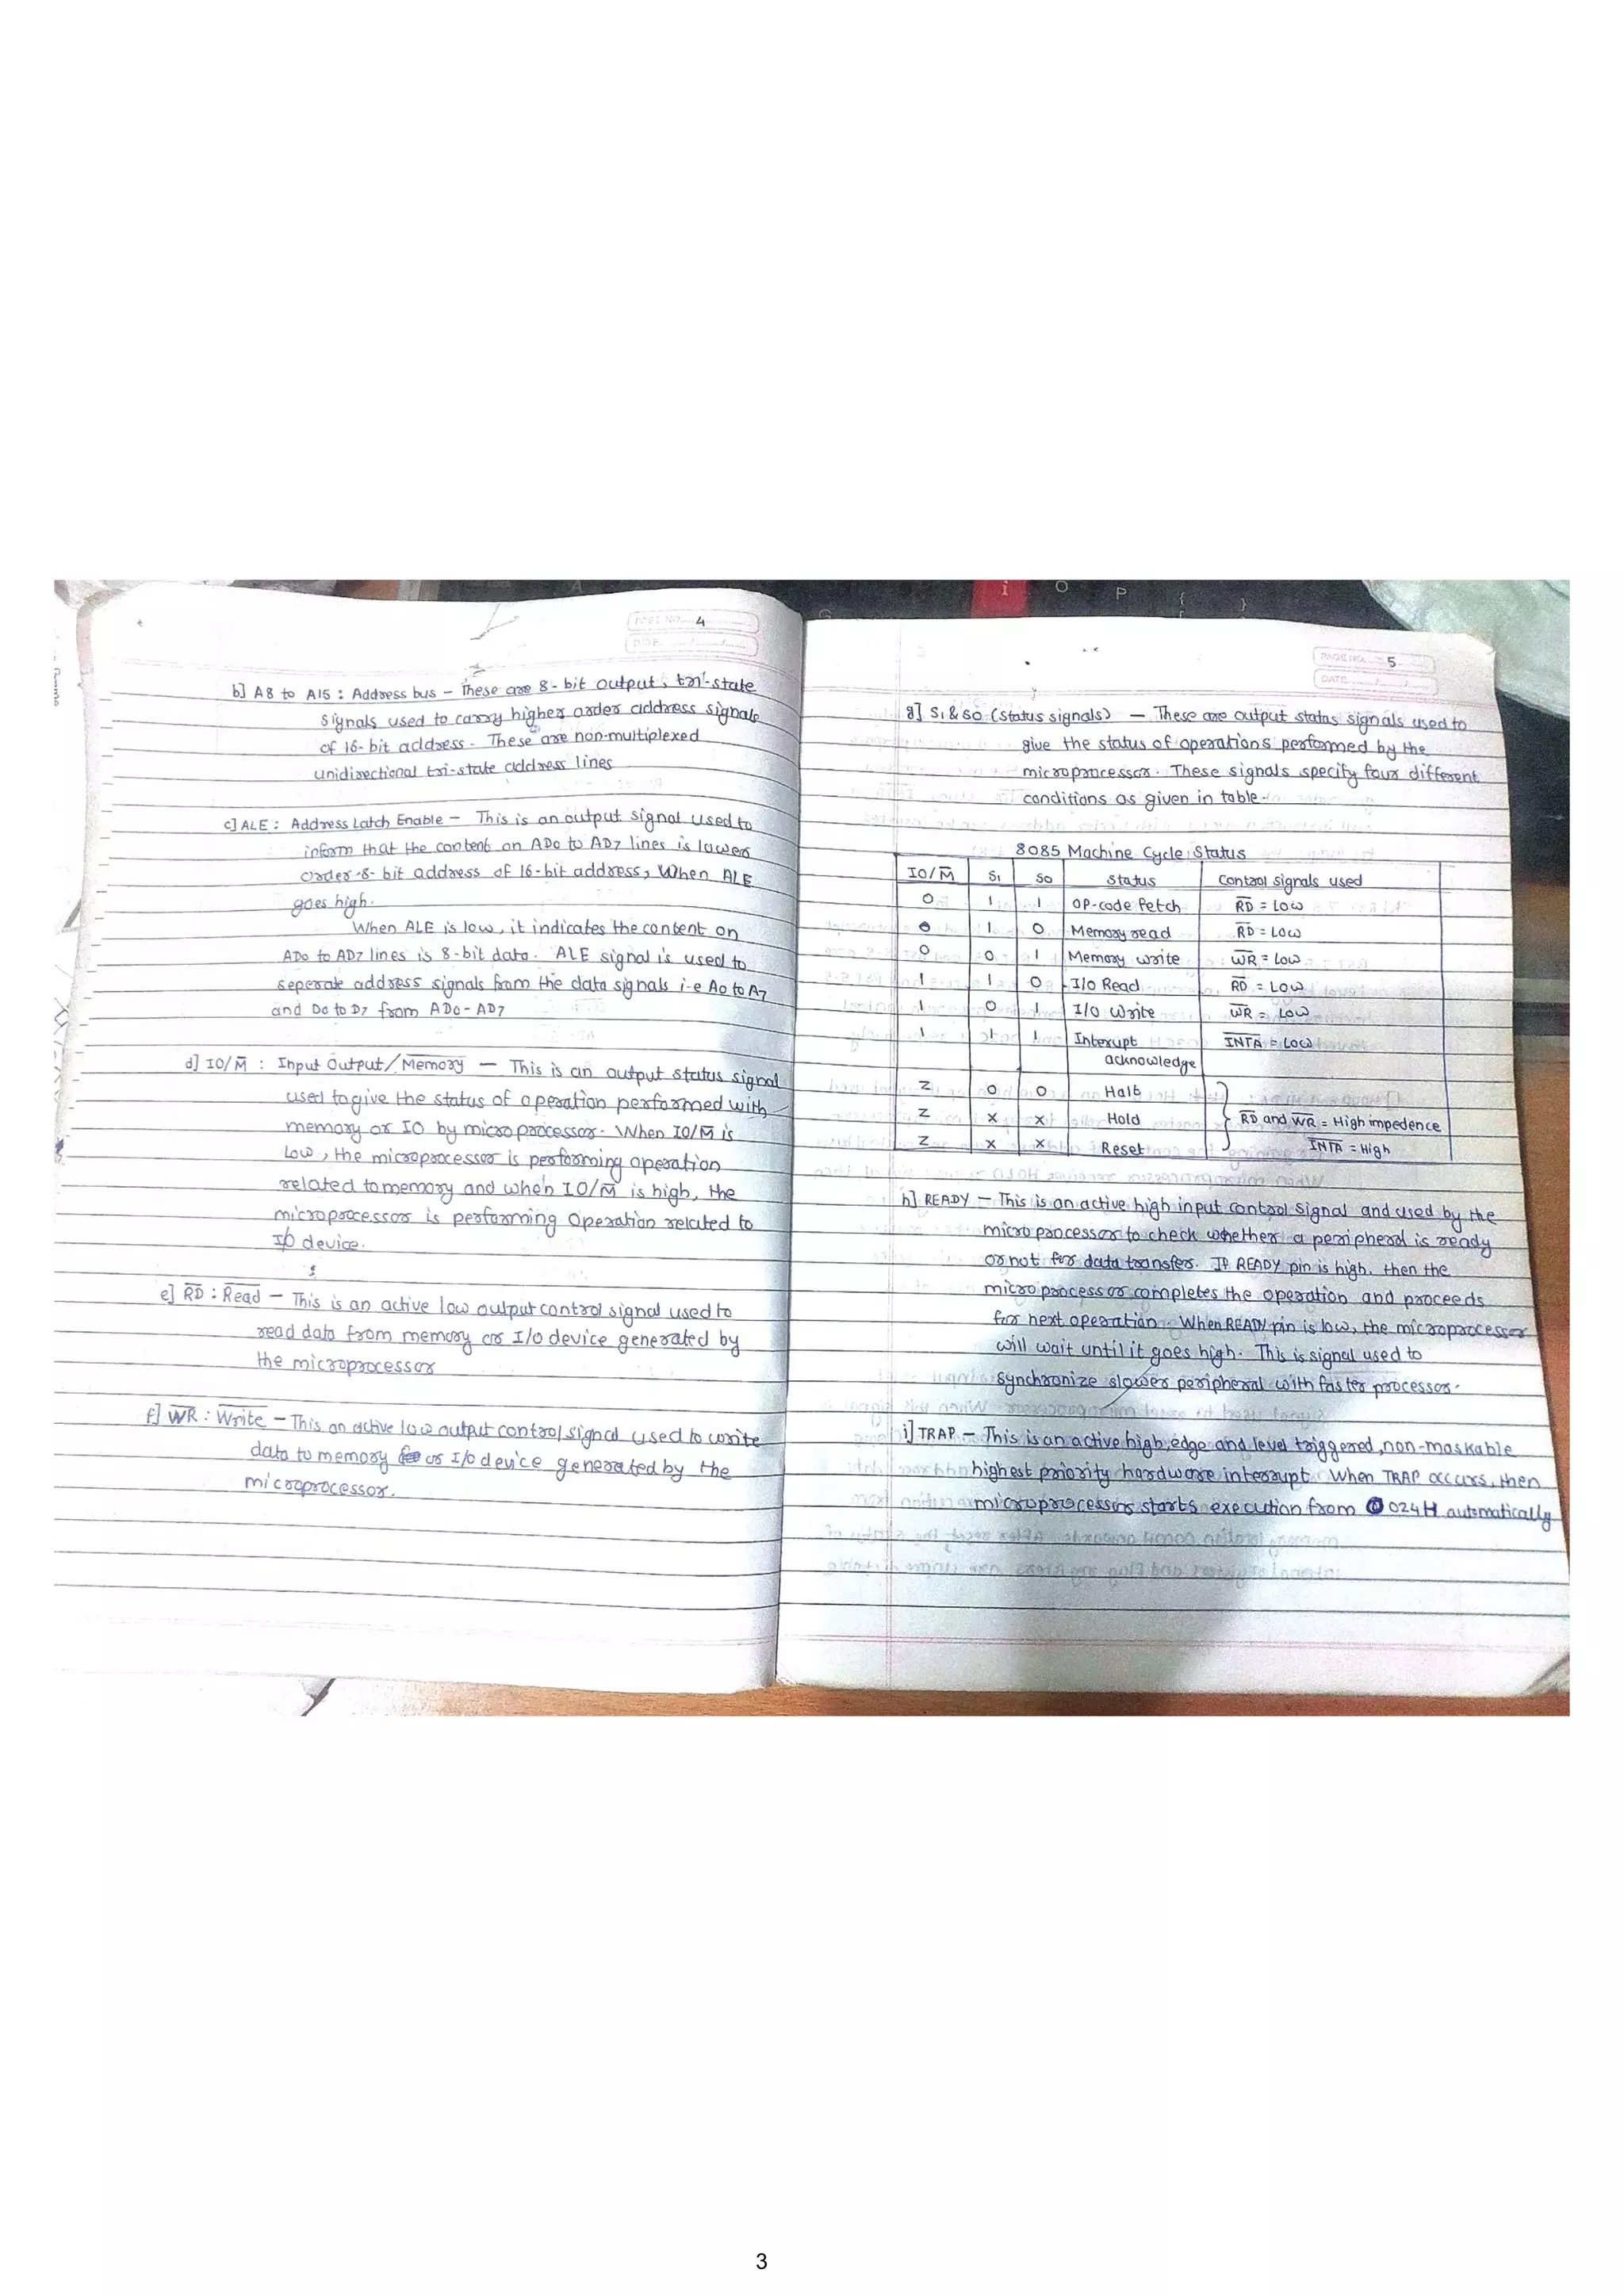 PAGE NO. 4
DATE
b] A8 to A15 : Address bus - These are 8-bit output, tri-state
signals used to carry higher order address signals
of 16-bit address. These are non-multiplexed
unidirectional tri-state address lines
c] ALE : Address Latch Enable - This is an output signal used to
inform that the content on AD0 to AD7 lines is lower
order 8-bit address of 16-bit address, When ALE
goes high.
When ALE is low, it indicates the content on
AD0 to AD7 lines is 8-bit data. ALE signal is used to
seperate address signals from the data signals i-e A0 to A7
and D0 to D7 from AD0 - AD7
d] IO/M̅ : Input Output/M̅e̅m̅o̅r̅y̅ - This is an output status signal
used to give the status of operation performed with
memory or IO by microprocessor. When IO/M̅ is
Low, the microprocessor is performing operation
related to memory and when IO/M̅ is high, the
microprocessor is performing operation related to
I/O device.
e] R̅D̅ : R̅e̅a̅d̅ - This is an active low output control signal used to
read data from memory or I/O device generated by
the microprocessor
f] W̅R̅ : W̅r̅i̅t̅e̅ - This an active low output control signal used to write
data to memory or I/O device generated by the
microprocessor.
PAGE NO. 5
DATE
g] S1 & S0 (Status signals) - These are output status signals used to
give the status of operations performed by the
microprocessor. These signals specify four different
conditions as given in table-
8085 Machine Cycle Status
IO/M̅ S1 S0 Status Control signals used
0 1 1 OP-code fetch R̅D̅ = Low
0 1 0 Memory read R̅D̅ = Low
0 0 1 Memory write W̅R̅ = Low
1 1 0 I/O Read R̅D̅ = Low
1 0 1 I/O Write W̅R̅ = Low
1 1 1 Interupt I̅N̅T̅A̅ = Low
acknowledge
Z 0 0 Halt
Z X X Hold R̅D̅ and W̅R̅ = High impedence
Z X X Reset I̅N̅T̅A̅ = High
h] READY - This is an active high input control signal and used by the
microprocessor to check whether a peripheral is ready
or not for data transfer. If READY pin is high, then the
microprocessor completes the operation and proceeds
for next operation. When READY pin is low, the microprocessor
will wait until it goes high. This is signal used to
synchronize slower peripheral with faster processor.
i] TRAP - This is an active high, edge and level triggered, non-maskable
highest priority hardware interrupt. When TRAP occurs, then
microprocessors starts execution from 0024H automatically
3